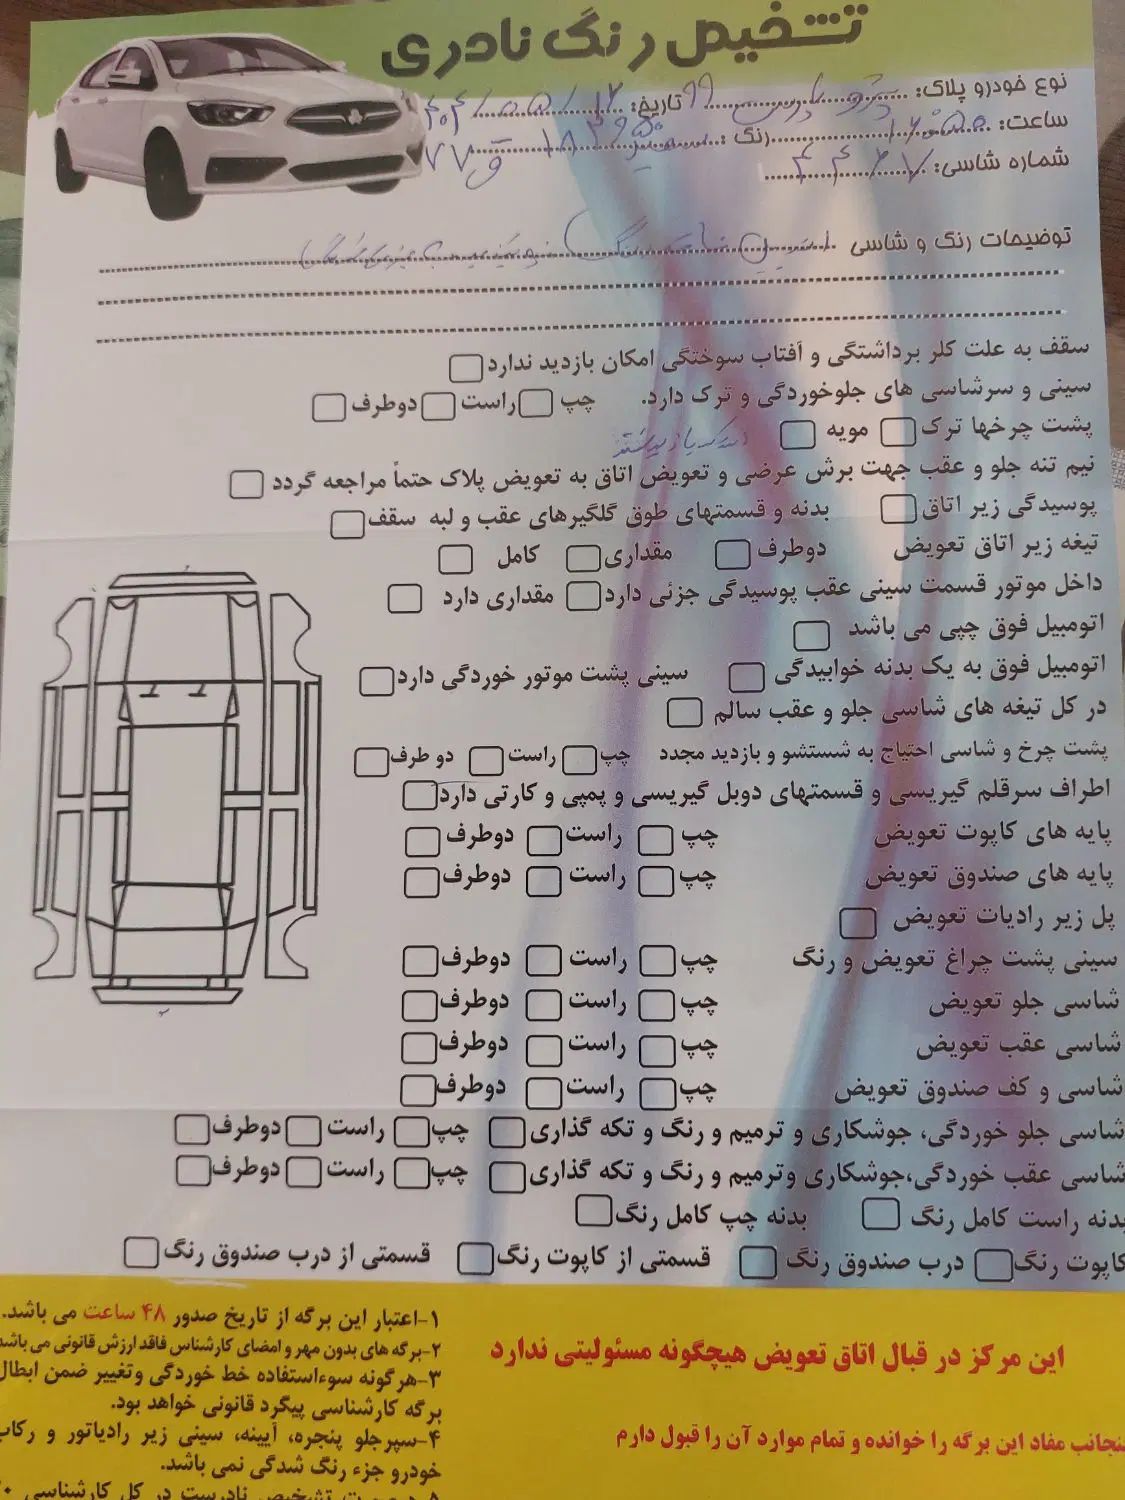 تشخیص رنگ نادری
نوع خودرو پلاک: پژو پارس ۹۹ تاریخ: ۴۰۴/۰۵/۱۲
ساعت: رنگ: سفید
شماره شاسی:
توضیحات رنگ و شاسی
سقف به علت کلر برداشتگی و آفتاب سوختگی امکان بازدید ندارد
سینی و سرشاسی های جلوخوردگی و ترک دارد. چپ راست دوطرف
پشت چرخها ترک مویه
نیم تنه جلو و عقب جهت برش عرضی و تعویض اتاق به تعویض پلاک حتماً مراجعه گردد
پوسیدگی زیر اتاق بدنه و قسمتهای طوق گلگیرهای عقب و لبه سقف
تیغه زیر اتاق تعویض دوطرف مقداری کامل
داخل موتور قسمت سینی عقب پوسیدگی جزئی دارد مقداری دارد
اتومبیل فوق چپی می باشد
اتومبیل فوق به یک بدنه خوابیدگی سینی پشت موتور خوردگی دارد
در کل تیغه های شاسی جلو و عقب سالم
پشت چرخ و شاسی احتیاج به شستشو و بازدید مجدد چپ راست دو طرف
اطراف سرقلم گیریسی و قسمتهای دوبل گیریسی و پمپی و کارتی دارد
پایه های کاپوت تعویض چپ راست دوطرف
پایه های صندوق تعویض چپ راست دوطرف
پل زیر رادیات تعویض
سینی پشت چراغ تعویض و رنگ چپ راست دوطرف
شاسی جلو تعویض چپ راست دوطرف
شاسی عقب تعویض چپ راست دوطرف
شاسی و کف صندوق تعویض چپ راست دوطرف
شاسی جلو خوردگی، جوشکاری و ترمیم و رنگ و تکه گذاری چپ راست دوطرف
شاسی عقب خوردگی،جوشکاری وترمیم و رنگ و تکه گذاری چپ راست دوطرف
بدنه راست کامل رنگ بدنه چپ کامل رنگ
کاپوت رنگ درب صندوق رنگ قسمتی از کاپوت رنگ قسمتی از درب صندوق رنگ
این مرکز در قبال اتاق تعویض هیچگونه مسئولیتی ندارد
ینجانب مفاد این برگه را خوانده و تمام موارد آن را قبول دارم
۱-اعتبار این برگه از تاریخ صدور ۴۸ ساعت می باشد.
۲-برگه های بدون مهر و امضای کارشناس فاقد ارزش قانونی می باشد
۳-هرگونه سوءاستفاده خط خوردگی وتغییر ضمن ابطال
برگه کارشناسی پیگرد قانونی خواهد بود.
۴-سپرجلو پنجره، آیینه، سینی زیر رادیاتور و رکاب
خودرو جزء رنگ شدگی نمی باشد.